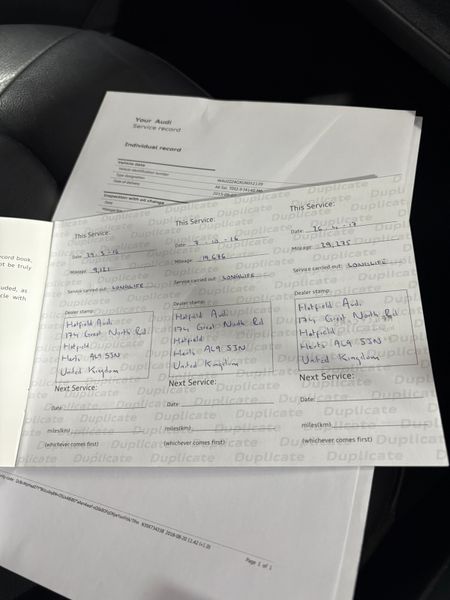 Your Audi
Service record
Individual record
Vehicle data
Vehicle identification number
Type designation
Date of delivery
Inspection with oil change
ecord book,
ot be truly
uded, as
cle with
This Service:
Date:
Mileage: 9,121
Service carried out: LONGLIFE
Dealer stamp:
Hatfield Audi
174 Great North Rd
Hatfield
Herts AL9 5JN
United Kingdom
Next Service:
Date:
miles(km)
(whichever comes first)
This Service:
Date: 7 . 10 . 16
Mileage: 19,676
Service carried out: LONGLIFE
Dealer stamp:
Hatfield Audi
174 Great North Rd
Hatfield
Herts AL9 5JN
United Kingdom
Next Service:
Date:
miles(km)
(whichever comes first)
This Service:
Date: 26 . 4 . 17
Mileage: 29,275
Service carried out: LONGLIFE
Dealer stamp:
Hatfield Audi
174 Great North Rd
Hatfield
Herts AL9 5JN
United Kingdom
Next Service:
Date:
miles(km)
(whichever comes first)
Duplicate
Page 1 of 1